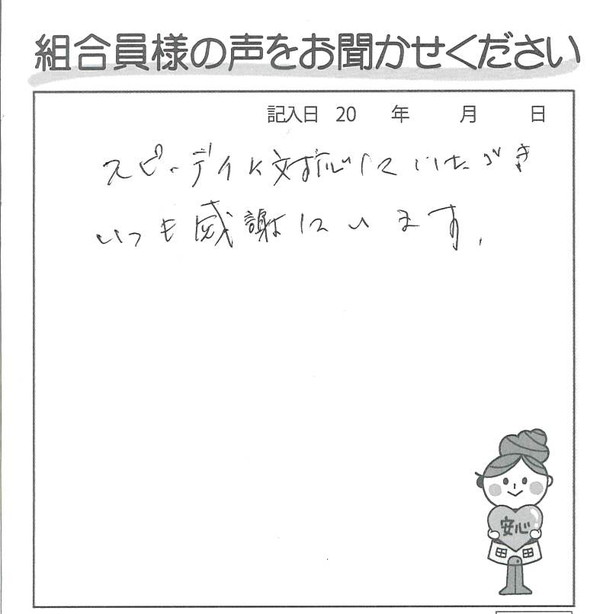 組合員様の声をお聞かせください
記入日 20 年 月 日
スピーディに対応していただき
いつも感謝しています。
安心